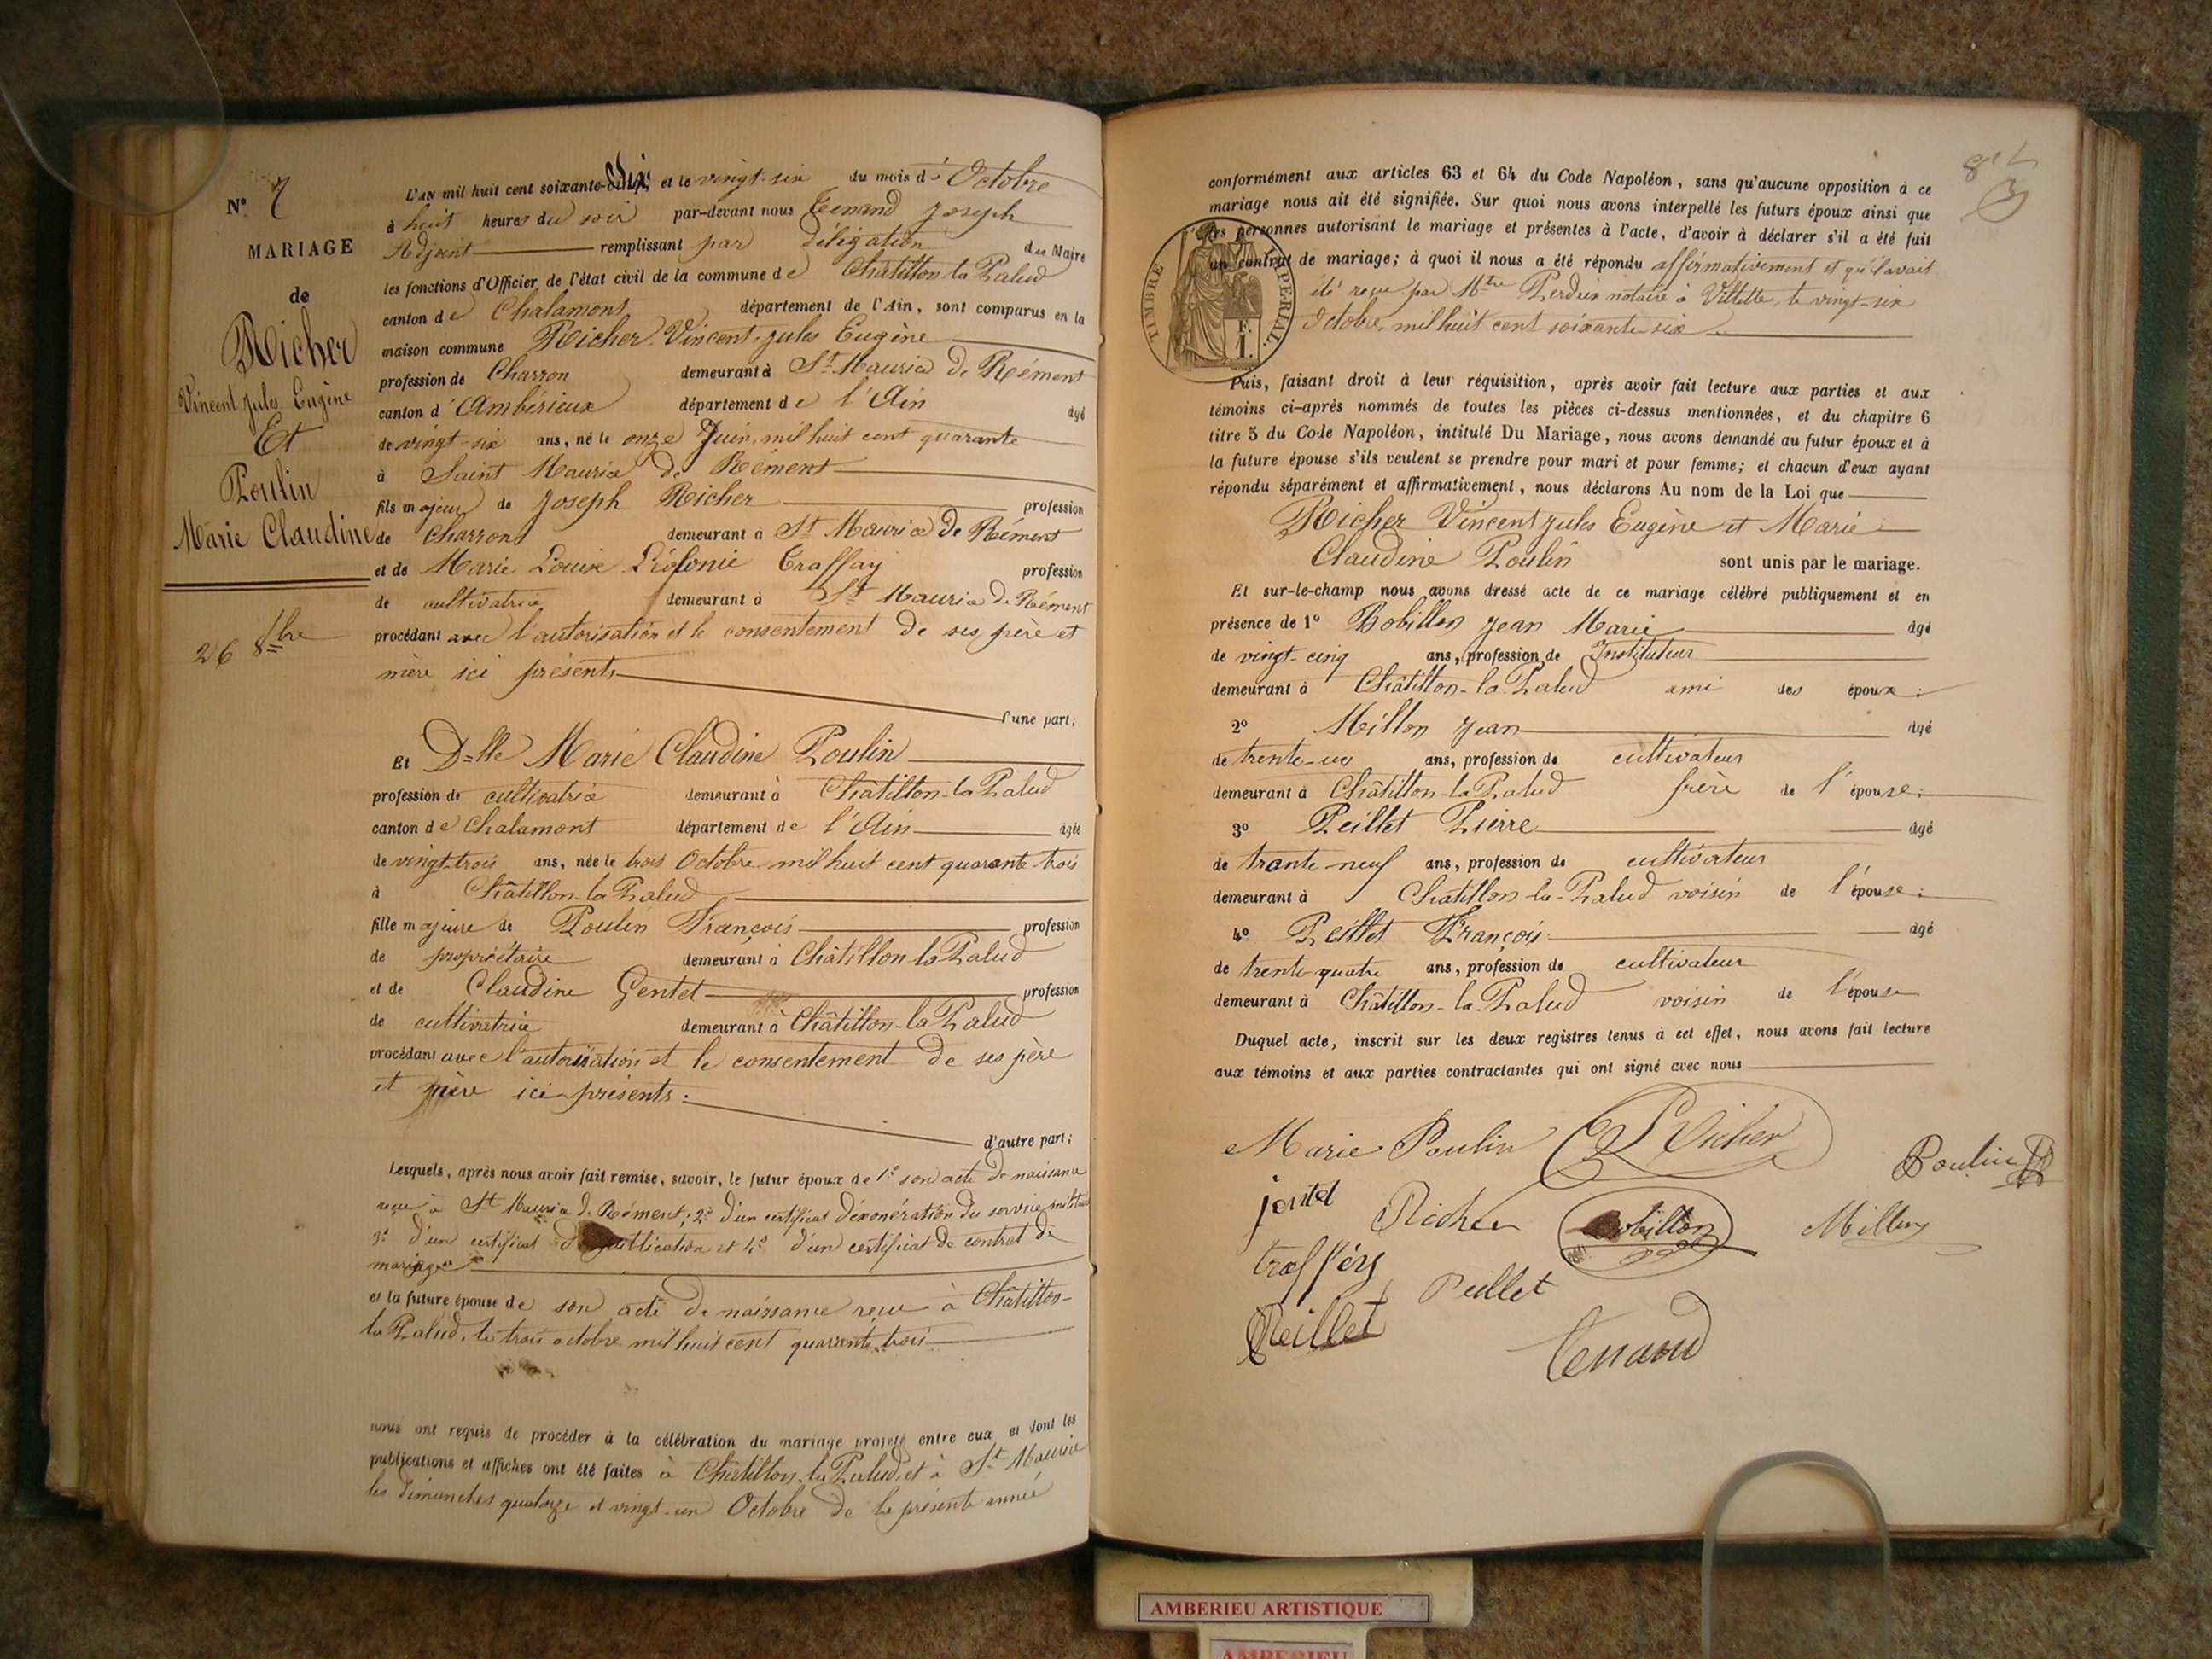 N° 7
MARIAGE
de
Richer
Vincent Jules Eugène
Et
Poulin
Marie Claudine
26 8bre
L'AN mil huit cent soixante-Six et le vingt-six du mois d'Octobre
à huit heures du soir par-devant nous Tenand Joseph
Adjoint remplissant par délégation du Maire
les fonctions d'Officier de l'état civil de la commune de Châtillon-la-Palud
canton de Chalamont département de l'Ain, sont comparus en la
maison commune Richer Vincent Jules Eugène
profession de Charron demeurant à St Maurice De Rément
canton d'Ambérieux département de l'Ain âgé
de vingt-six ans, né le onze Juin, mil huit cent quarante
à Saint Maurice de Rément
fils majeur de Joseph Richer profession
de Charron demeurant à St Maurice De Rément
et de Marie Louise Léofonie Traffay profession
de cultivatrice demeurant à St Maurice De Rément
procédant avec l'autorisation et le consentement de ses père et
mère ici présents
d'une part;
Et D=lle Marie Claudine Poulin
profession de cultivatrice demeurant à Châtillon-la-Palud
canton de Chalamont département de l'Ain âgée
de vingt-trois ans, née le trois Octobre mil huit cent quarante-trois
à Châtillon-la-Palud
fille majeure de Poulin François profession
de propriétaire demeurant à Châtillon-la-Palud
et de Claudine Gentet profession
de cultivatrice demeurant à Châtillon-la-Palud
procédant avec l'autorisation et le consentement de ses père
et mère ici présents.
d'autre part;
Lesquels, après nous avoir fait remise, savoir, le futur époux de 1° son acte de naissance
reçu à St Maurice De Rément; 2° d'un certificat d'exonération du service militaire
3° d'un certificat de publication et 4° d'un certificat de contrat de
mariage
et la future épouse de son acte de naissance reçu à Châtillon-
la Palud, le trois octobre mil huit cent quarante-trois
nous ont requis de procéder à la célébration du mariage projeté entre eux et dont les
publications et affiches ont été faites à Châtillon-la-Palud et à St Maurice
les dimanches quatorze et vingt-un Octobre de la présente année
conformément aux articles 63 et 64 du Code Napoléon, sans qu'aucune opposition à ce
mariage nous ait été signifiée. Sur quoi nous avons interpellé les futurs époux ainsi que
les personnes autorisant le mariage et présentes à l'acte, d'avoir à déclarer s'il a été fait
un contrat de mariage; à quoi il nous a été répondu affirmativement et qu'il avait
été reçu par Mtre Perdrix notaire à Villette, le vingt-six
Octobre, mil huit cent soixante-six
TIMBRE IMPÉRIAL
Puis, faisant droit à leur réquisition, après avoir fait lecture aux parties et aux
témoins ci-après nommés de toutes les pièces ci-dessus mentionnées, et du chapitre 6
titre 5 du Code Napoléon, intitulé Du Mariage, nous avons demandé au futur époux et à
la future épouse s'ils veulent se prendre pour mari et pour femme; et chacun d'eux ayant
répondu séparément et affirmativement, nous déclarons Au nom de la Loi que
Richer Vincent Jules Eugène et Marie
Claudine Poulin sont unis par le mariage.
Et sur-le-champ nous avons dressé acte de ce mariage célébré publiquement et en
présence de 1° Bobillon Jean Marie âgé
de vingt-cinq ans, profession de Instituteur
demeurant à Châtillon-la-Palud ami des époux;
2° Millon Jean âgé
de trente-un ans, profession de cultivateur
demeurant à Châtillon-la-Palud frère de l'épouse;
3° Peillet Pierre âgé
de trente-neuf ans, profession de cultivateur
demeurant à Châtillon-la-Palud voisin de l'épouse;
4° Peillet François âgé
de trente-quatre ans, profession de cultivateur
demeurant à Châtillon-la-Palud voisin de l'épouse
Duquel acte, inscrit sur les deux registres tenus à cet effet, nous avons fait lecture
aux témoins et aux parties contractantes qui ont signé avec nous
Marie Poulin Richer Poulin
jentet Richer Bobillon Millon
traffery Peillet
Peillet Tenand
AMBERIEU ARTISTIQUE
AMBERIEU